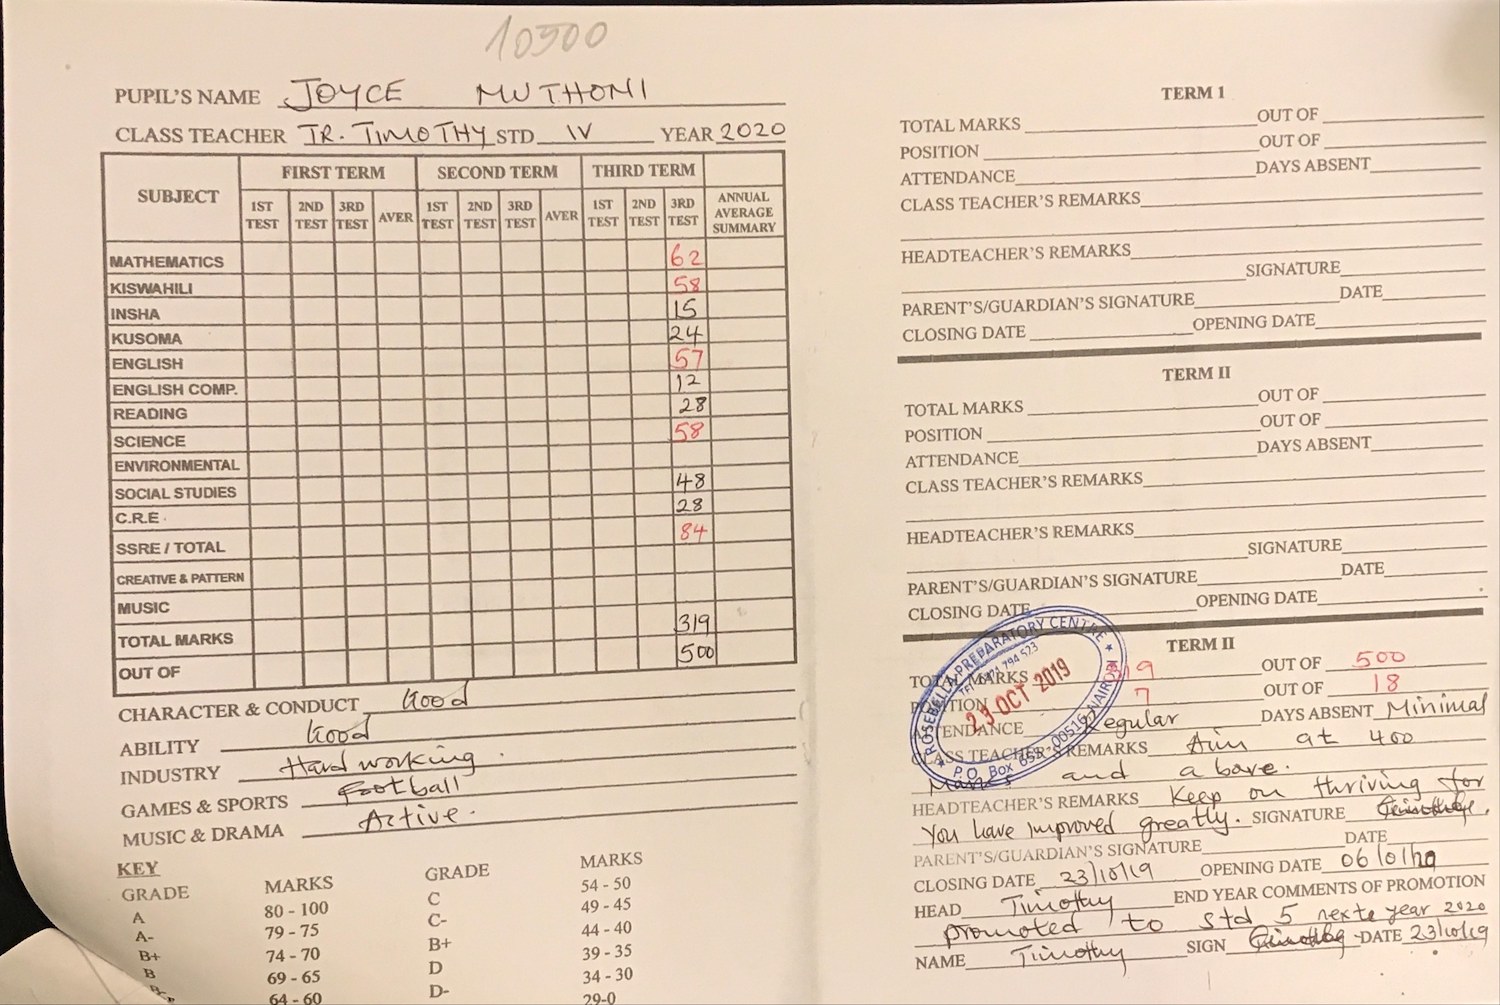 10500
PUPIL'S NAME JOYCE MUTHONI
CLASS TEACHER TR. TIMOTHY STD IV YEAR 2020
SUBJECT FIRST TERM SECOND TERM THIRD TERM
1ST TEST 2ND TEST 3RD TEST AVER 1ST TEST 2ND TEST 3RD TEST AVER 1ST TEST 2ND TEST 3RD TEST ANNUAL AVERAGE SUMMARY
MATHEMATICS 62
KISWAHILI 58
INSHA 15
KUSOMA 24
ENGLISH 57
ENGLISH COMP. 12
READING 28
SCIENCE 58
ENVIRONMENTAL
SOCIAL STUDIES 48
C.R.E 28
SSRE / TOTAL 84
CREATIVE & PATTERN
MUSIC
TOTAL MARKS 319
OUT OF 500
CHARACTER & CONDUCT Good
ABILITY Good
INDUSTRY Hard working
GAMES & SPORTS Football
MUSIC & DRAMA Active.
KEY
GRADE MARKS GRADE MARKS
A 80 - 100 C 54 - 50
A- 79 - 75 C- 49 - 45
B+ 74 - 70 B+ 44 - 40
B 69 - 65 D 39 - 35
64 - 60 D- 34 - 30
29-0
TERM 1
TOTAL MARKS OUT OF
POSITION OUT OF
ATTENDANCE DAYS ABSENT
CLASS TEACHER'S REMARKS
HEADTEACHER'S REMARKS
SIGNATURE
PARENT'S/GUARDIAN'S SIGNATURE DATE
CLOSING DATE OPENING DATE
TERM II
TOTAL MARKS OUT OF
POSITION OUT OF
ATTENDANCE DAYS ABSENT
CLASS TEACHER'S REMARKS
HEADTEACHER'S REMARKS
SIGNATURE
PARENT'S/GUARDIAN'S SIGNATURE DATE
CLOSING DATE OPENING DATE
TERM II
TOTAL MARKS 19 OUT OF 500
POSITION 7 OUT OF 18
ATTENDANCE Regular DAYS ABSENT Minimal
CLASS TEACHER'S REMARKS Aim at 400
Marks and above.
HEADTEACHER'S REMARKS Keep on thriving for
You have improved greatly. SIGNATURE
PARENT'S/GUARDIAN'S SIGNATURE DATE
CLOSING DATE 23/10/19 OPENING DATE 06/01/20
HEAD Timothy END YEAR COMMENTS OF PROMOTION
promoted to std 5 nexte year 2020
NAME Timothy SIGN DATE 23/10/19
ROSEBELLA PREPARATORY CENTRE
794 523
23 OCT 2019
P.O. Box 652 00516 NAIROBI